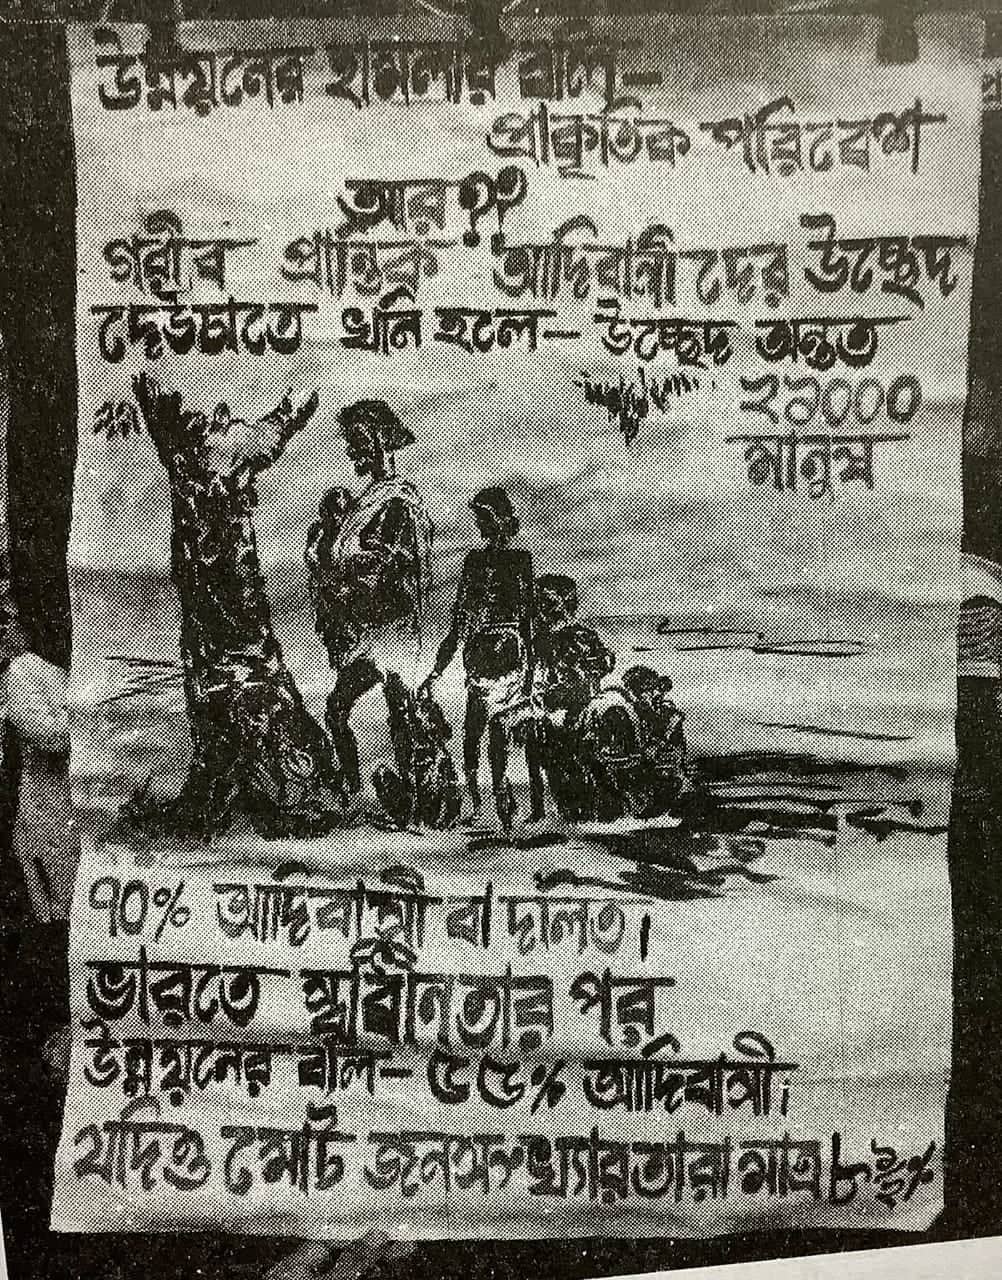 উন্নয়নের হামলার বলি–
প্রাকৃতিক পরিবেশ
আর??
গরীব প্রান্তিক আদিবাসীদের উচ্ছেদ
দেউচাতে খনি হলে– উচ্ছেদ অন্তত
২১০০০
মানুষ
৭০% আদিবাসী বা দলিত।
ভারতে স্বাধীনতার পর
উন্নয়নের বলি– ৫৫% আদিবাসী।
যদিও মোট জনসংখ্যার তারা মাত্র ৮ ১/২%